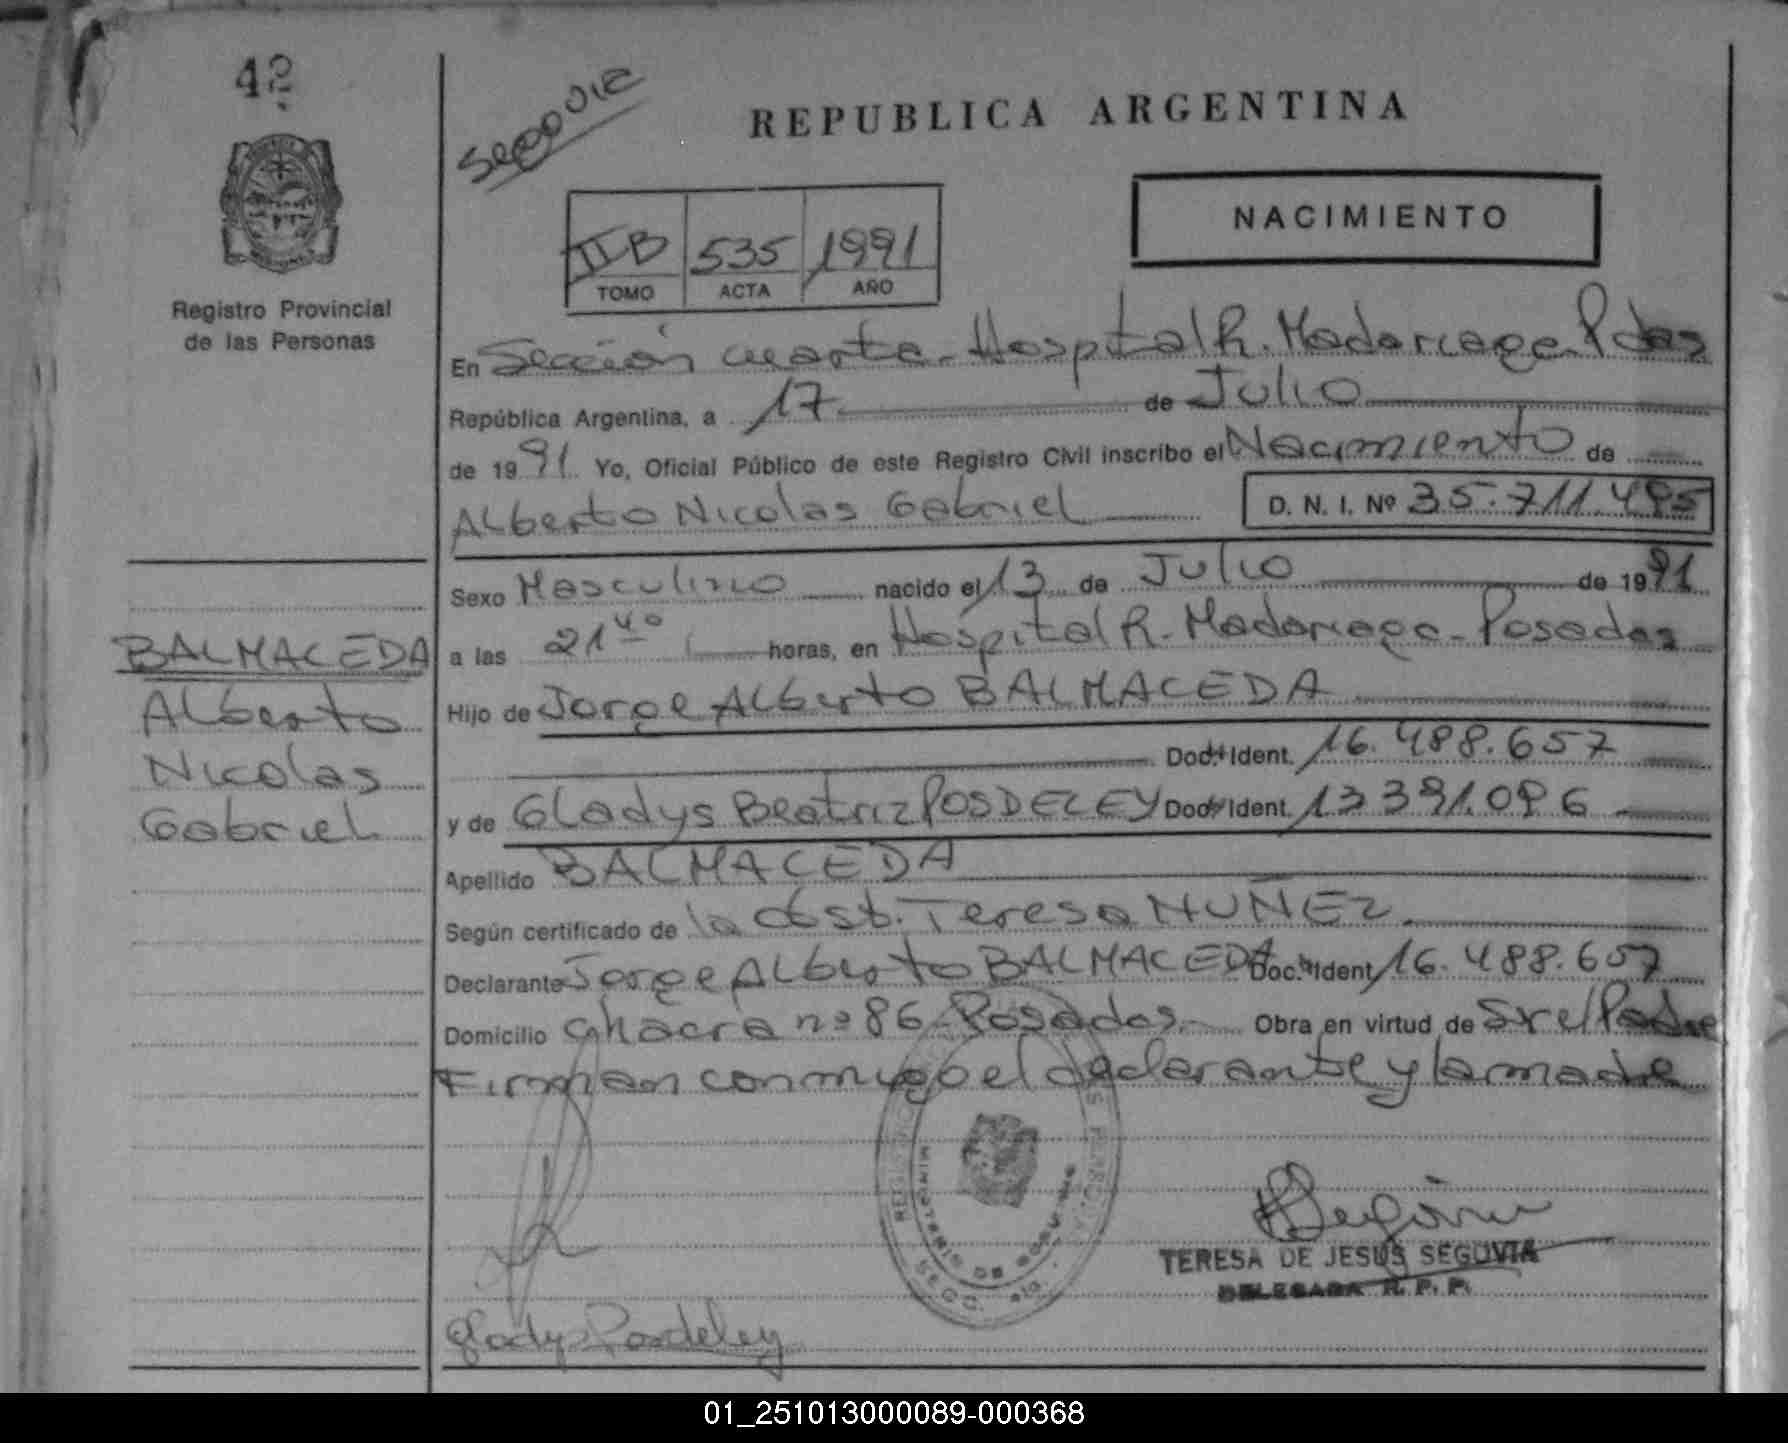 42
Segovia
REPUBLICA ARGENTINA
Registro Provincial
de las Personas
II B 535 1991
TOMO ACTA AÑO
NACIMIENTO
En Sección cuarta - Hospital R. Madariaga - Pdas
República Argentina, a 17 de Julio
de 1991 Yo, Oficial Público de este Registro Civil inscribo el Nacimiento de
Alberto Nicolas Gabriel D. N. I. Nº 35.711.495
Sexo Masculino nacido el 13 de Julio de 1991
a las 21 40 horas, en Hospital R. Madariaga - Posadas
Hijo de Jorge Alberto BALMACEDA
Doc. Ident. 16.488.657
y de Gladys Beatriz POSDELEY Doc. Ident. 13.391.096
Apellido BALMACEDA
Según certificado de la obst. Teresa NUÑEZ.
Declarante Jorge Alberto BALMACEDA Doc. Ident 16.488.657
Domicilio chacra nº 86 - Posadas - Obra en virtud de Ser el Padre
Firman conmigo el declarante y la madre
BALMACEDA
Alberto
Nicolas
Gabriel
MINISTERIO DE
TERESA DE JESUS SEGOVIA
DELEGADA R. P. P.
Gladys Posdeley
01_251013000089-000368